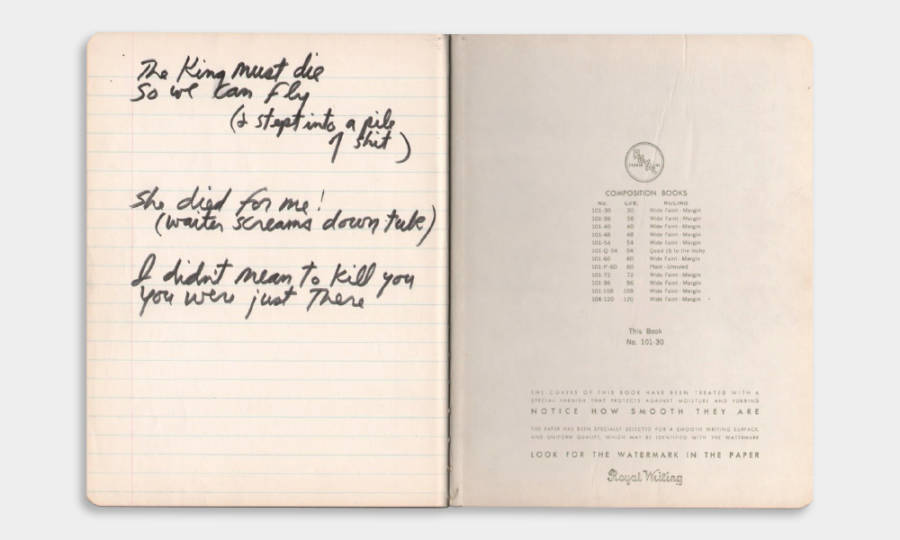 The King must die
So we can fly
(I stept into a pile
of shit)
She died for me!
(waiter screams down tube)
I didn't mean to kill you
you were just there
COMPOSITION BOOKS
NO. LVS. RULING
101-30 30 Wide Faint - Margin
101-36 36 Wide Faint - Margin
101-40 40 Wide Faint - Margin
101-48 48 Wide Faint - Margin
101-54 54 Wide Faint - Margin
101-Q-54 54 Quad (5 to the inch)
101-60 60 Wide Faint - Margin
101-P-60 60 Plain - Unruled
101-72 72 Wide Faint - Margin
101-96 96 Wide Faint - Margin
101-108 108 Wide Faint - Margin
108-120 120 Wide Faint - Margin
This Book
No. 101-30
THE COVERS OF THIS BOOK HAVE BEEN TREATED WITH A
SPECIAL VARNISH THAT PROTECTS AGAINST MOISTURE AND RUBBING
NOTICE HOW SMOOTH THEY ARE
THE PAPER HAS BEEN SPECIALLY SELECTED FOR A SMOOTH WRITING SURFACE,
AND UNIFORM QUALITY, WHICH MAY BE IDENTIFIED WITH THE WATERMARK
LOOK FOR THE WATERMARK IN THE PAPER
Royal Writing